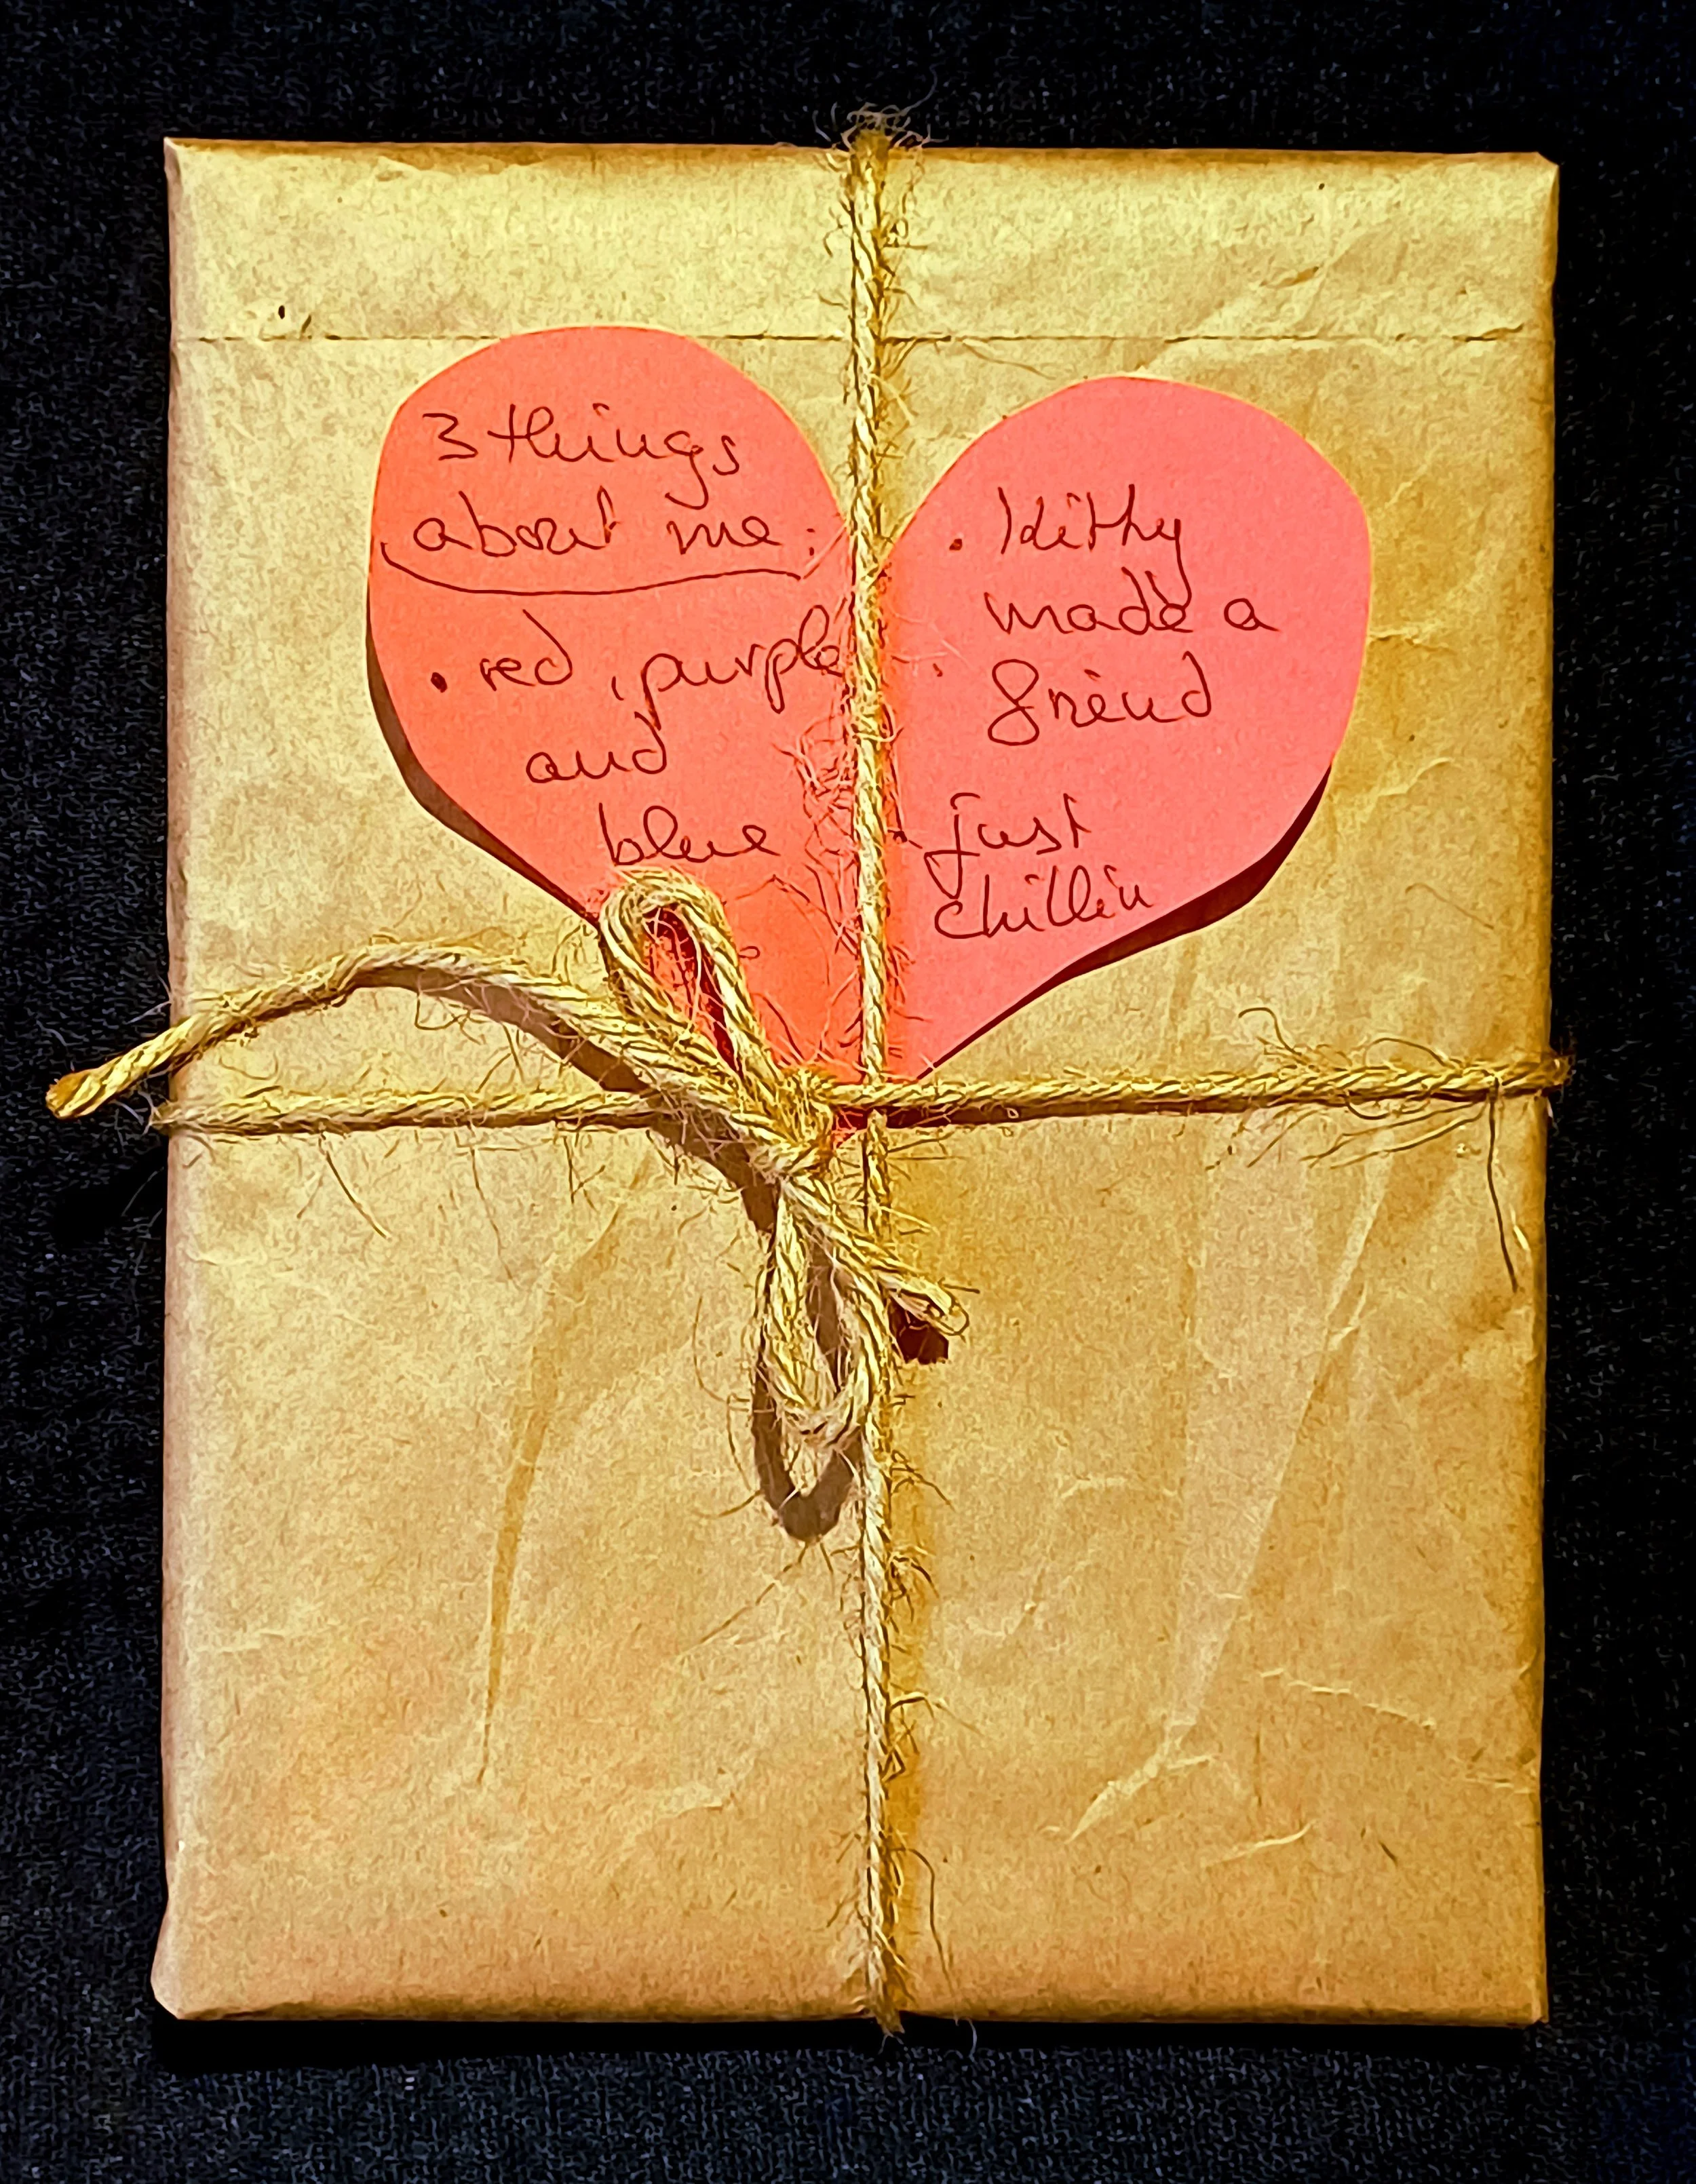 3 things
about me:
• red, purple
and
blue
• Kitty
made a
friend
• just
chillin